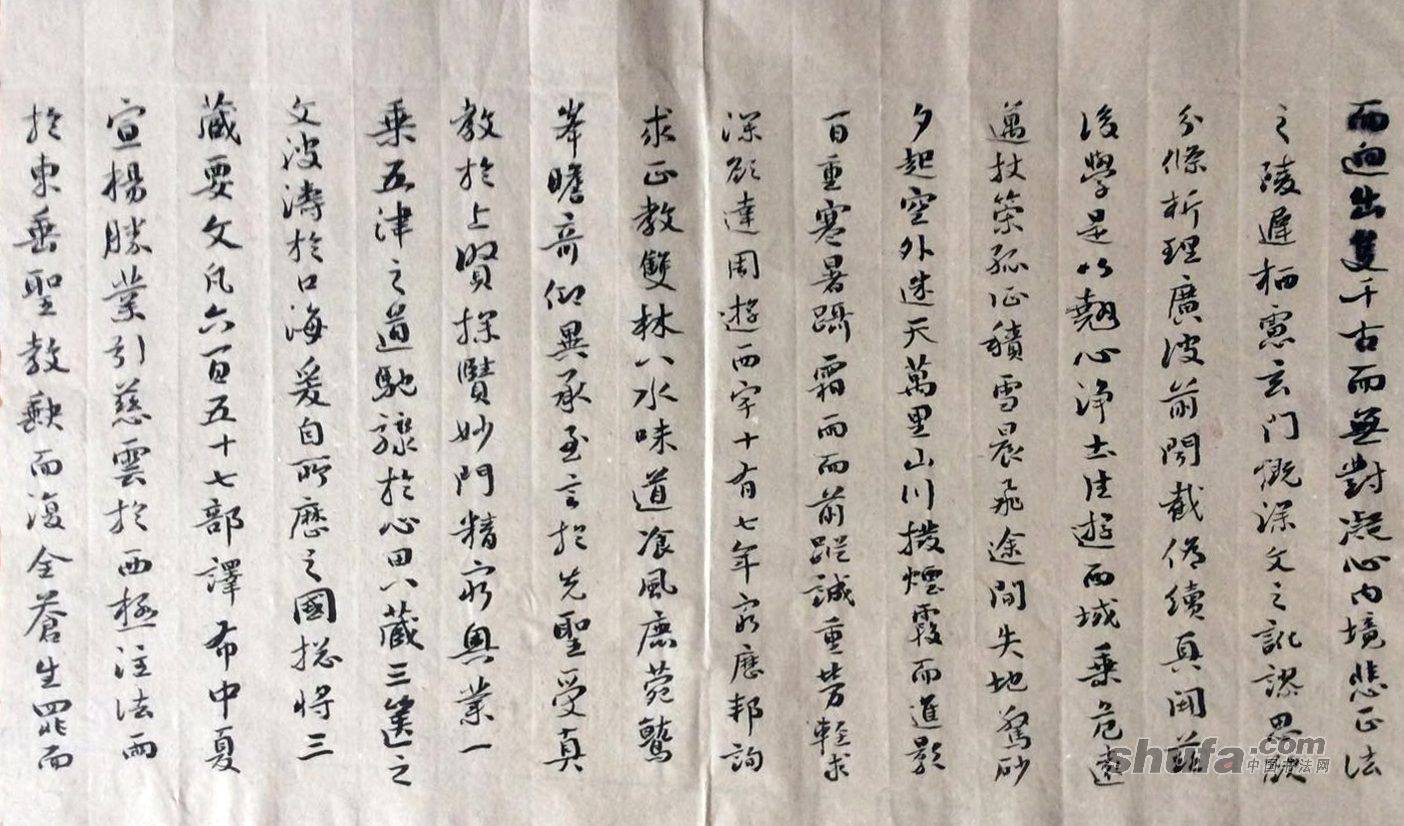 而迥出隻千古而無對凝心內境悲正法
之陵遲栖慮玄門慨深文之訛謬思欲
分條析理廣彼前聞截偽續真開茲
後學是以翹心淨土往遊西域乘危遠
邁杖策孤征積雪晨飛途間失地驚砂
夕起空外迷天萬里山川撥煙霞而進影
百重寒暑躡霜雨而前蹤誠重勞輕求
深願達周遊西宇十有七年窮歷邦詢
求正教雙林八水味道飡風鹿菀鷲
峯瞻奇仰異承至言於先聖受真
教於上賢探賾妙門精窮奧業一
乘五津之道馳驟於心田八藏三篋之
文波濤於口海爰自所歷之國揔將三
藏要文凡六百五十七部譯布中夏
宣揚勝業引慈雲於西極注法雨
於東垂聖教缺而復全蒼生罪而
shufa.com
中国书法网